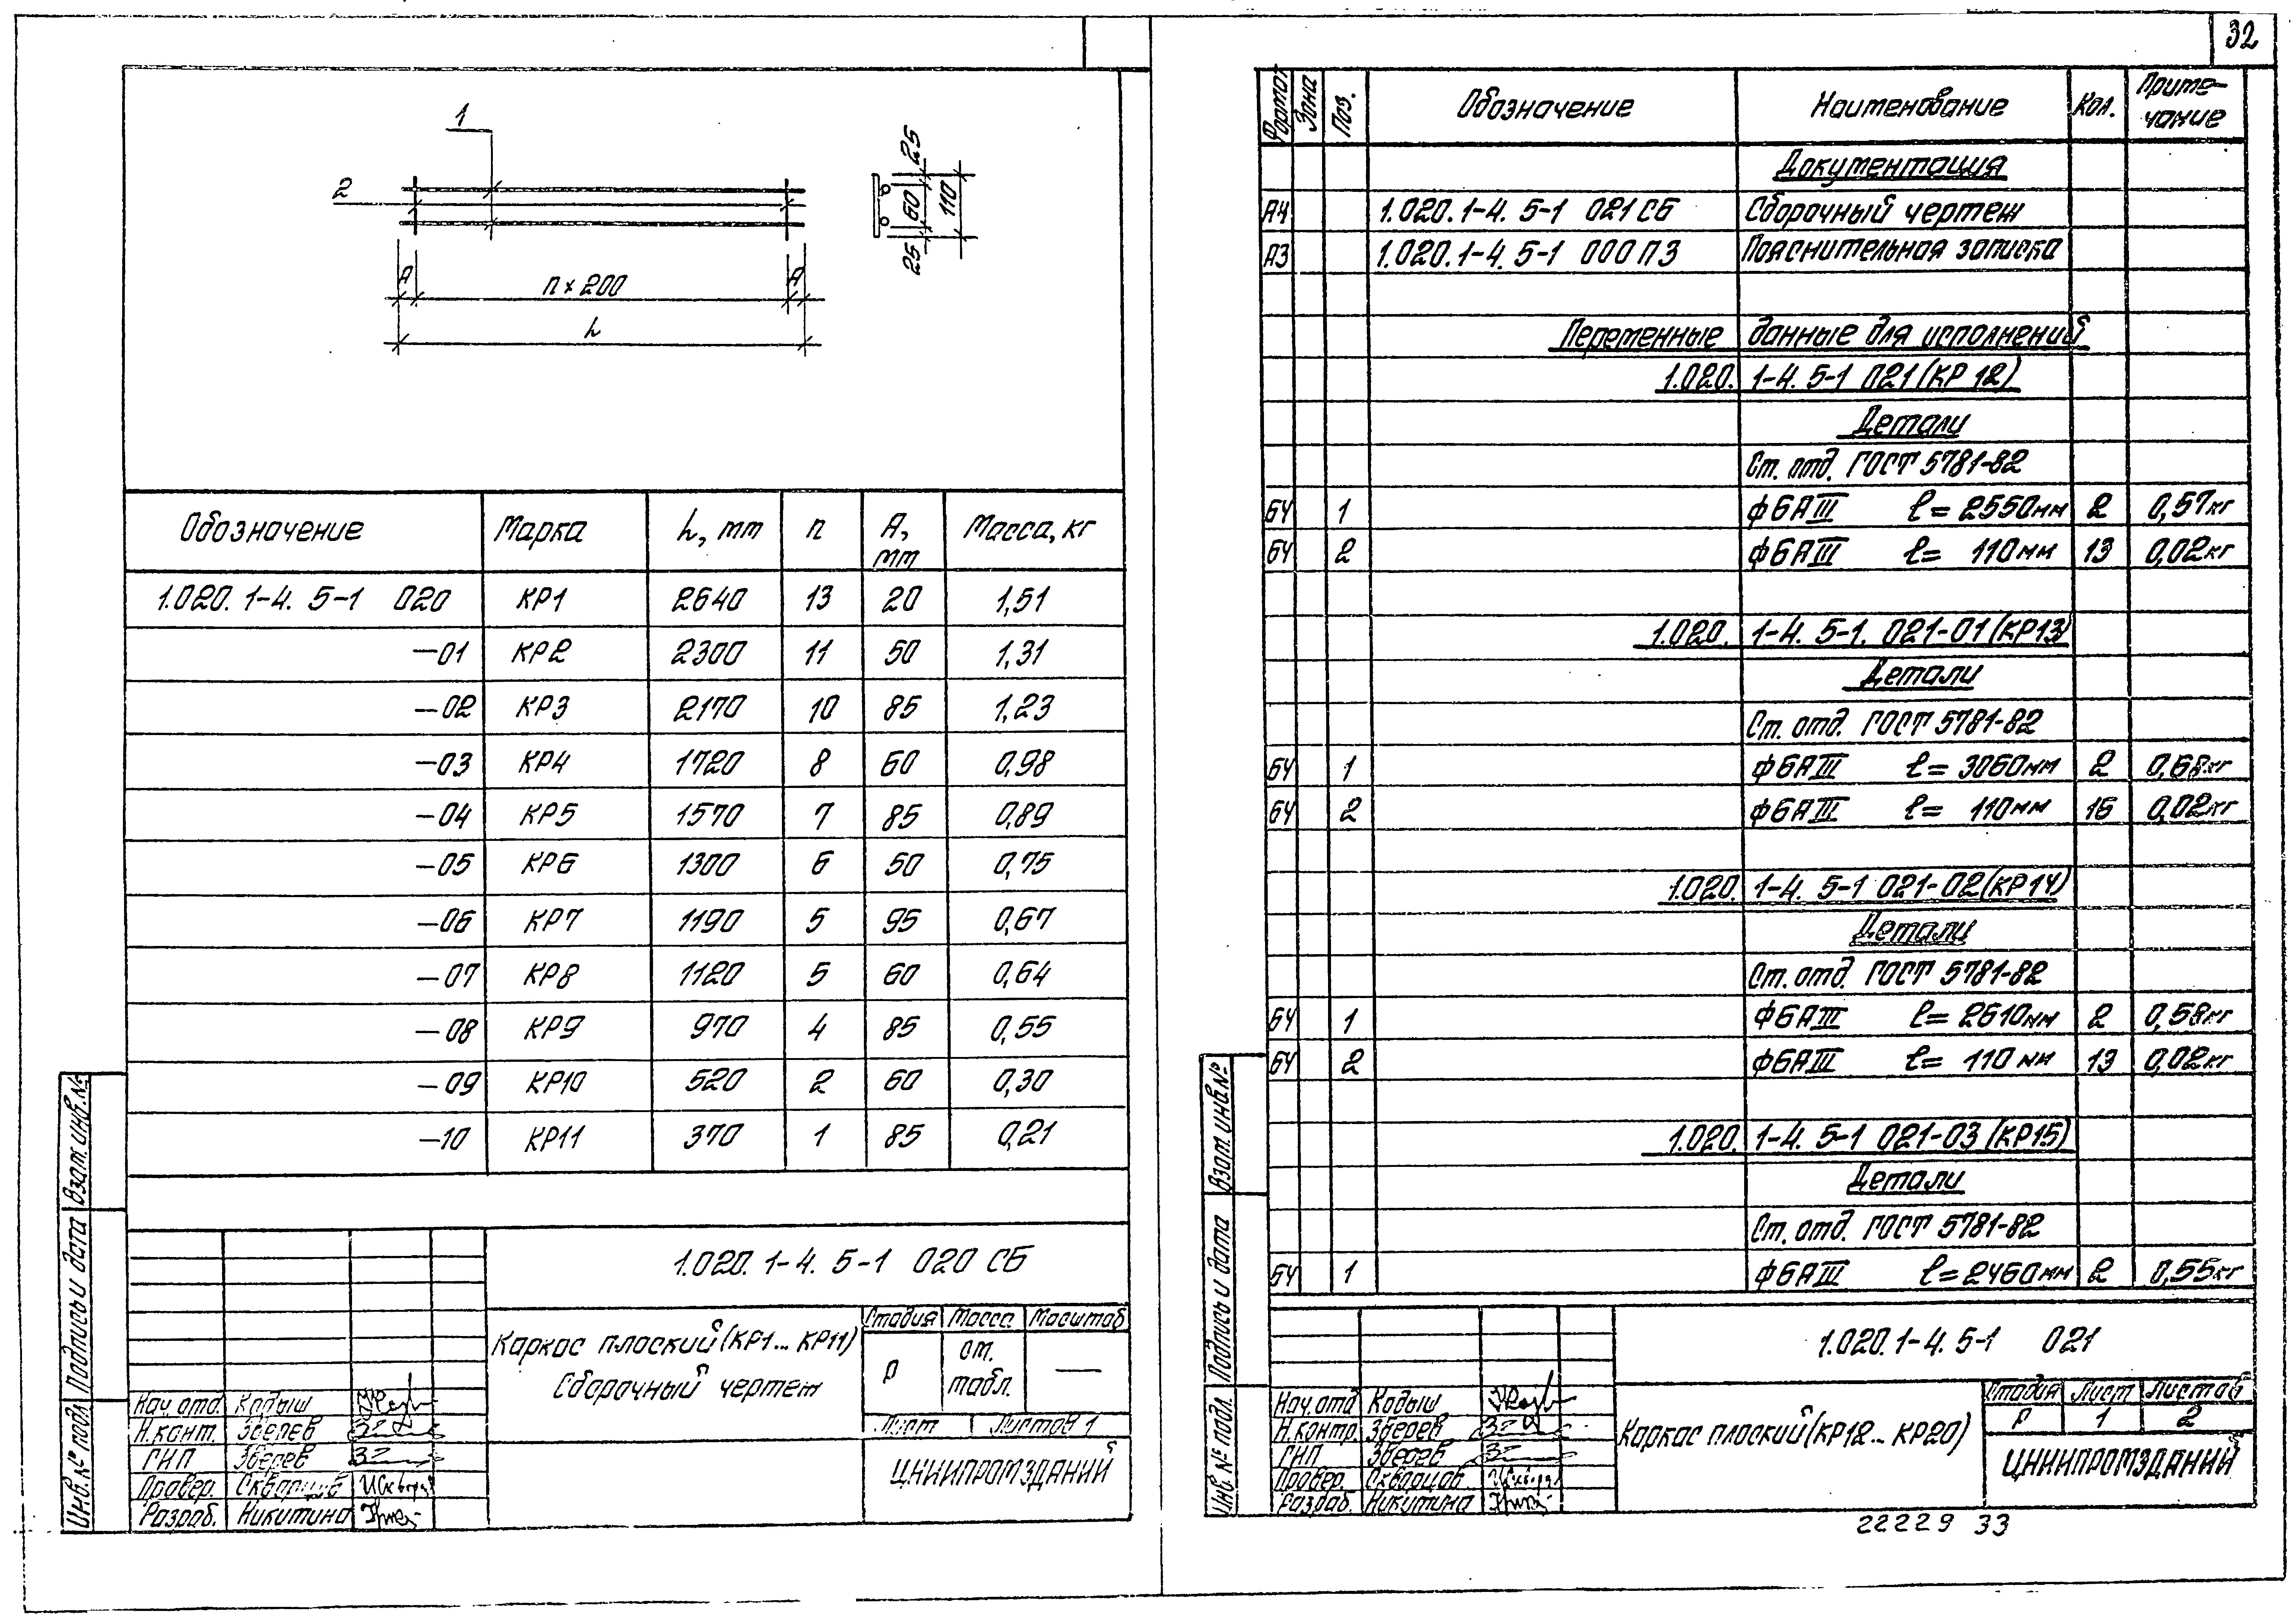 32
1
2
A
n × 200
A
h
25
60
110
25
Обозначение Марка h, мм n А, мм Масса, кг
1.020.1-4. 5-1 020 КР1 2640 13 20 1,51
—01 КР2 2300 11 50 1,31
—02 КР3 2170 10 85 1,23
—03 КР4 1720 8 60 0,98
—04 КР5 1570 7 85 0,89
—05 КР6 1300 6 50 0,75
—06 КР7 1190 5 95 0,67
—07 КР8 1120 5 60 0,64
—08 КР9 970 4 85 0,55
—09 КР10 520 2 60 0,30
—10 КР11 370 1 85 0,21
1.020.1-4. 5-1 020 СБ
Каркас плоский (КР1... КР11)
Сборочный чертеж
Стадия Масса Масштаб
Р от. табл. —
Лист Листов 1
ЦНИИПРОМЗДАНИЙ
Нач. отд. Кодыш
Н.конт. Зверев
ГИП Зверев
Провер. Скворцов
Разраб. Никитина
Взам. инв. №
Подпись и дата
Инв. № подл.
Формат Зона Поз. Обозначение Наименование Кол. Примечание
Документация
А4 1.020.1-4. 5-1 021 СБ Сборочный чертеж
А3 1.020.1-4. 5-1 000 ПЗ Пояснительная записка
Переменные данные для исполнений
1.020.1-4. 5-1 021 (КР 12)
Детали
Ст. отд. ГОСТ 5781-82
БЧ 1 ф6АIII ℓ= 2550мм 2 0,57кг
БЧ 2 ф6АIII ℓ= 110мм 13 0,02кг
1.020.1-4. 5-1. 021-01 (КР13)
Детали
Ст. отд. ГОСТ 5781-82
БЧ 1 ф6АIII ℓ= 3060мм 2 0,68кг
БЧ 2 ф6АIII ℓ= 110мм 16 0,02кг
1.020.1-4. 5-1 021-02 (КР14)
Детали
Ст. отд. ГОСТ 5781-82
БЧ 1 ф6АIII ℓ= 2610мм 2 0,58кг
БЧ 2 ф6АIII ℓ= 110мм 13 0,02кг
1.020.1-4. 5-1 021-03 (КР15)
Детали
Ст. отд. ГОСТ 5781-82
БЧ 1 ф6АIII ℓ= 2460мм 2 0,55кг
1.020.1-4. 5-1 021
Каркас плоский (КР12... КР20)
Стадия Лист Листов
Р 1 2
ЦНИИПРОМЗДАНИЙ
Нач. отд Кодыш
Н.контр. Зверев
ГИП Зверев
Провер. Скворцов
Разраб. Никитина
Взам. инв. №
Подпись и дата
Инв. № подл.
22229 33